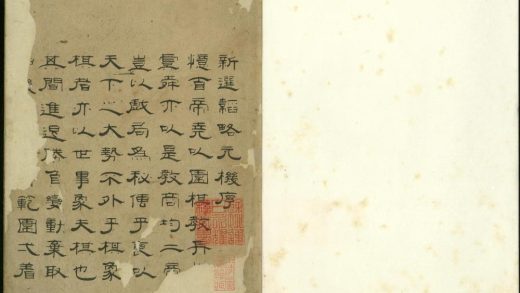 新選韜略元機序
憶昔帝堯以圍棋教丹
虞舜亦以是教商均二帝
豈以戲局為秘傳乎良以
天下之大勢不外乎棋象
棋者亦以世事象夫棋也
其間進退勝負變動棄取
範圍弌着